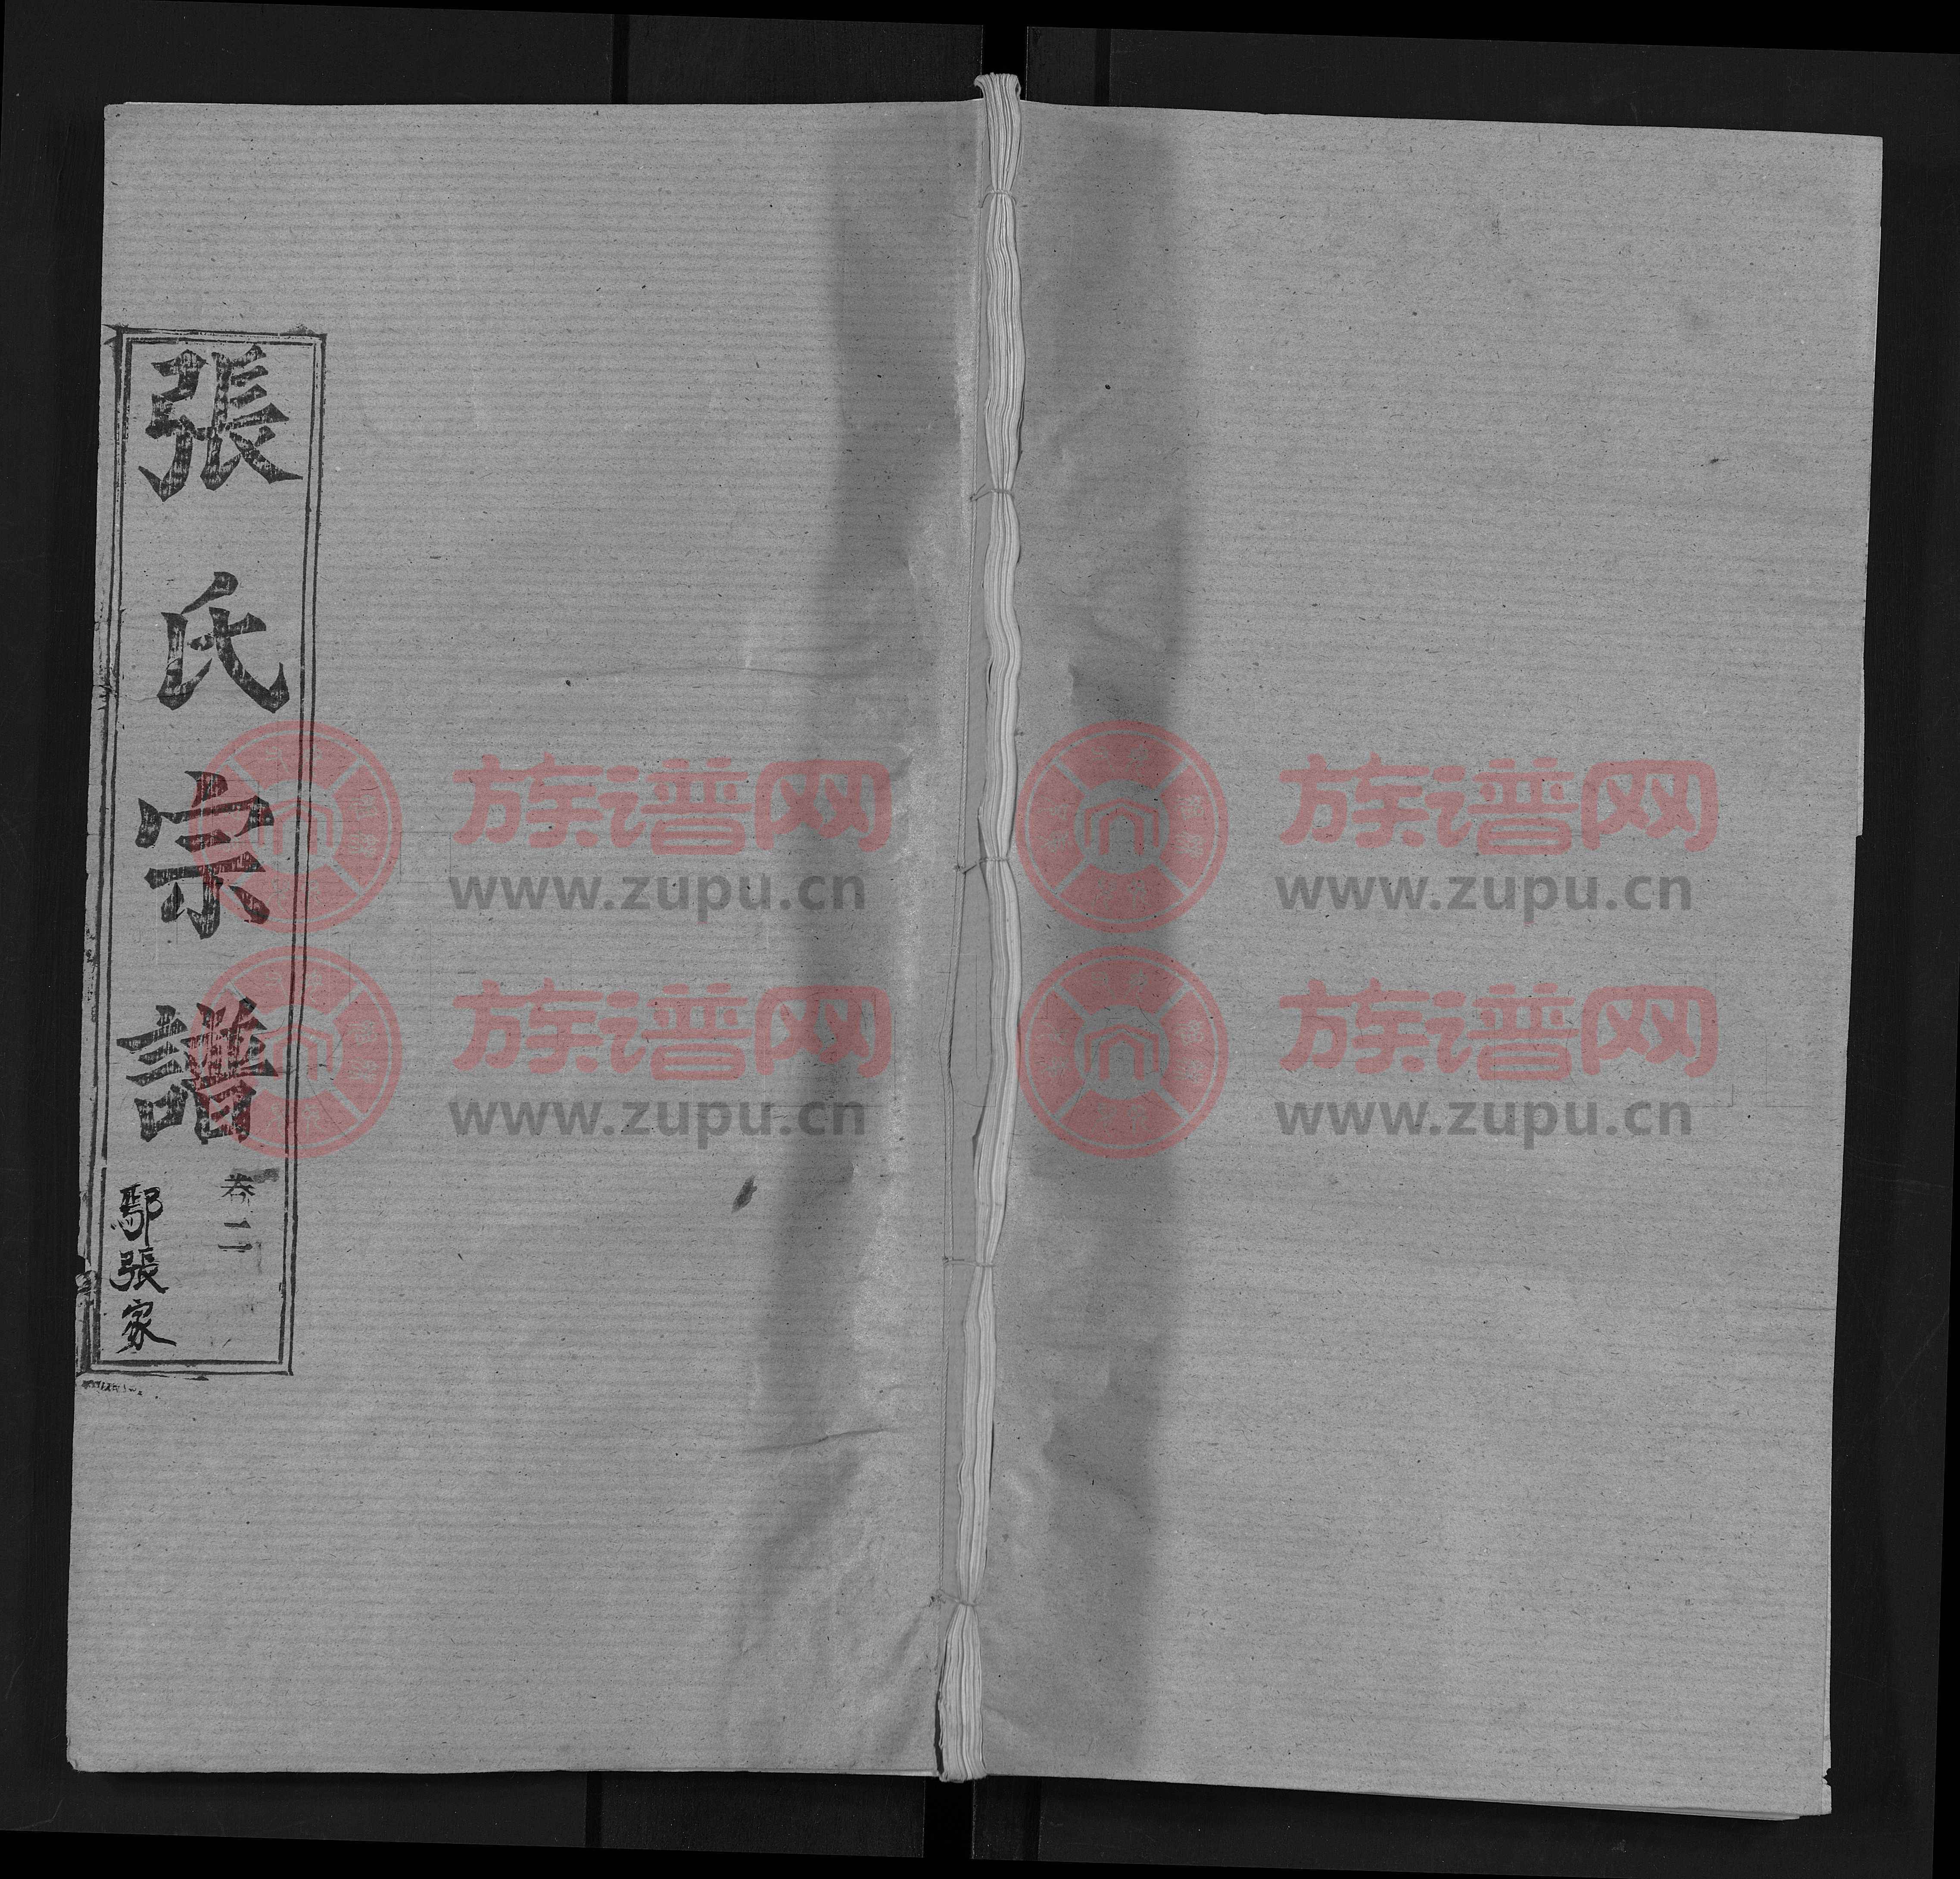 張氏宗譜
卷二
鄢張家
族谱网
www.zupu.cn
族谱网
www.zupu.cn
族谱网
www.zupu.cn
族谱网
www.zupu.cn